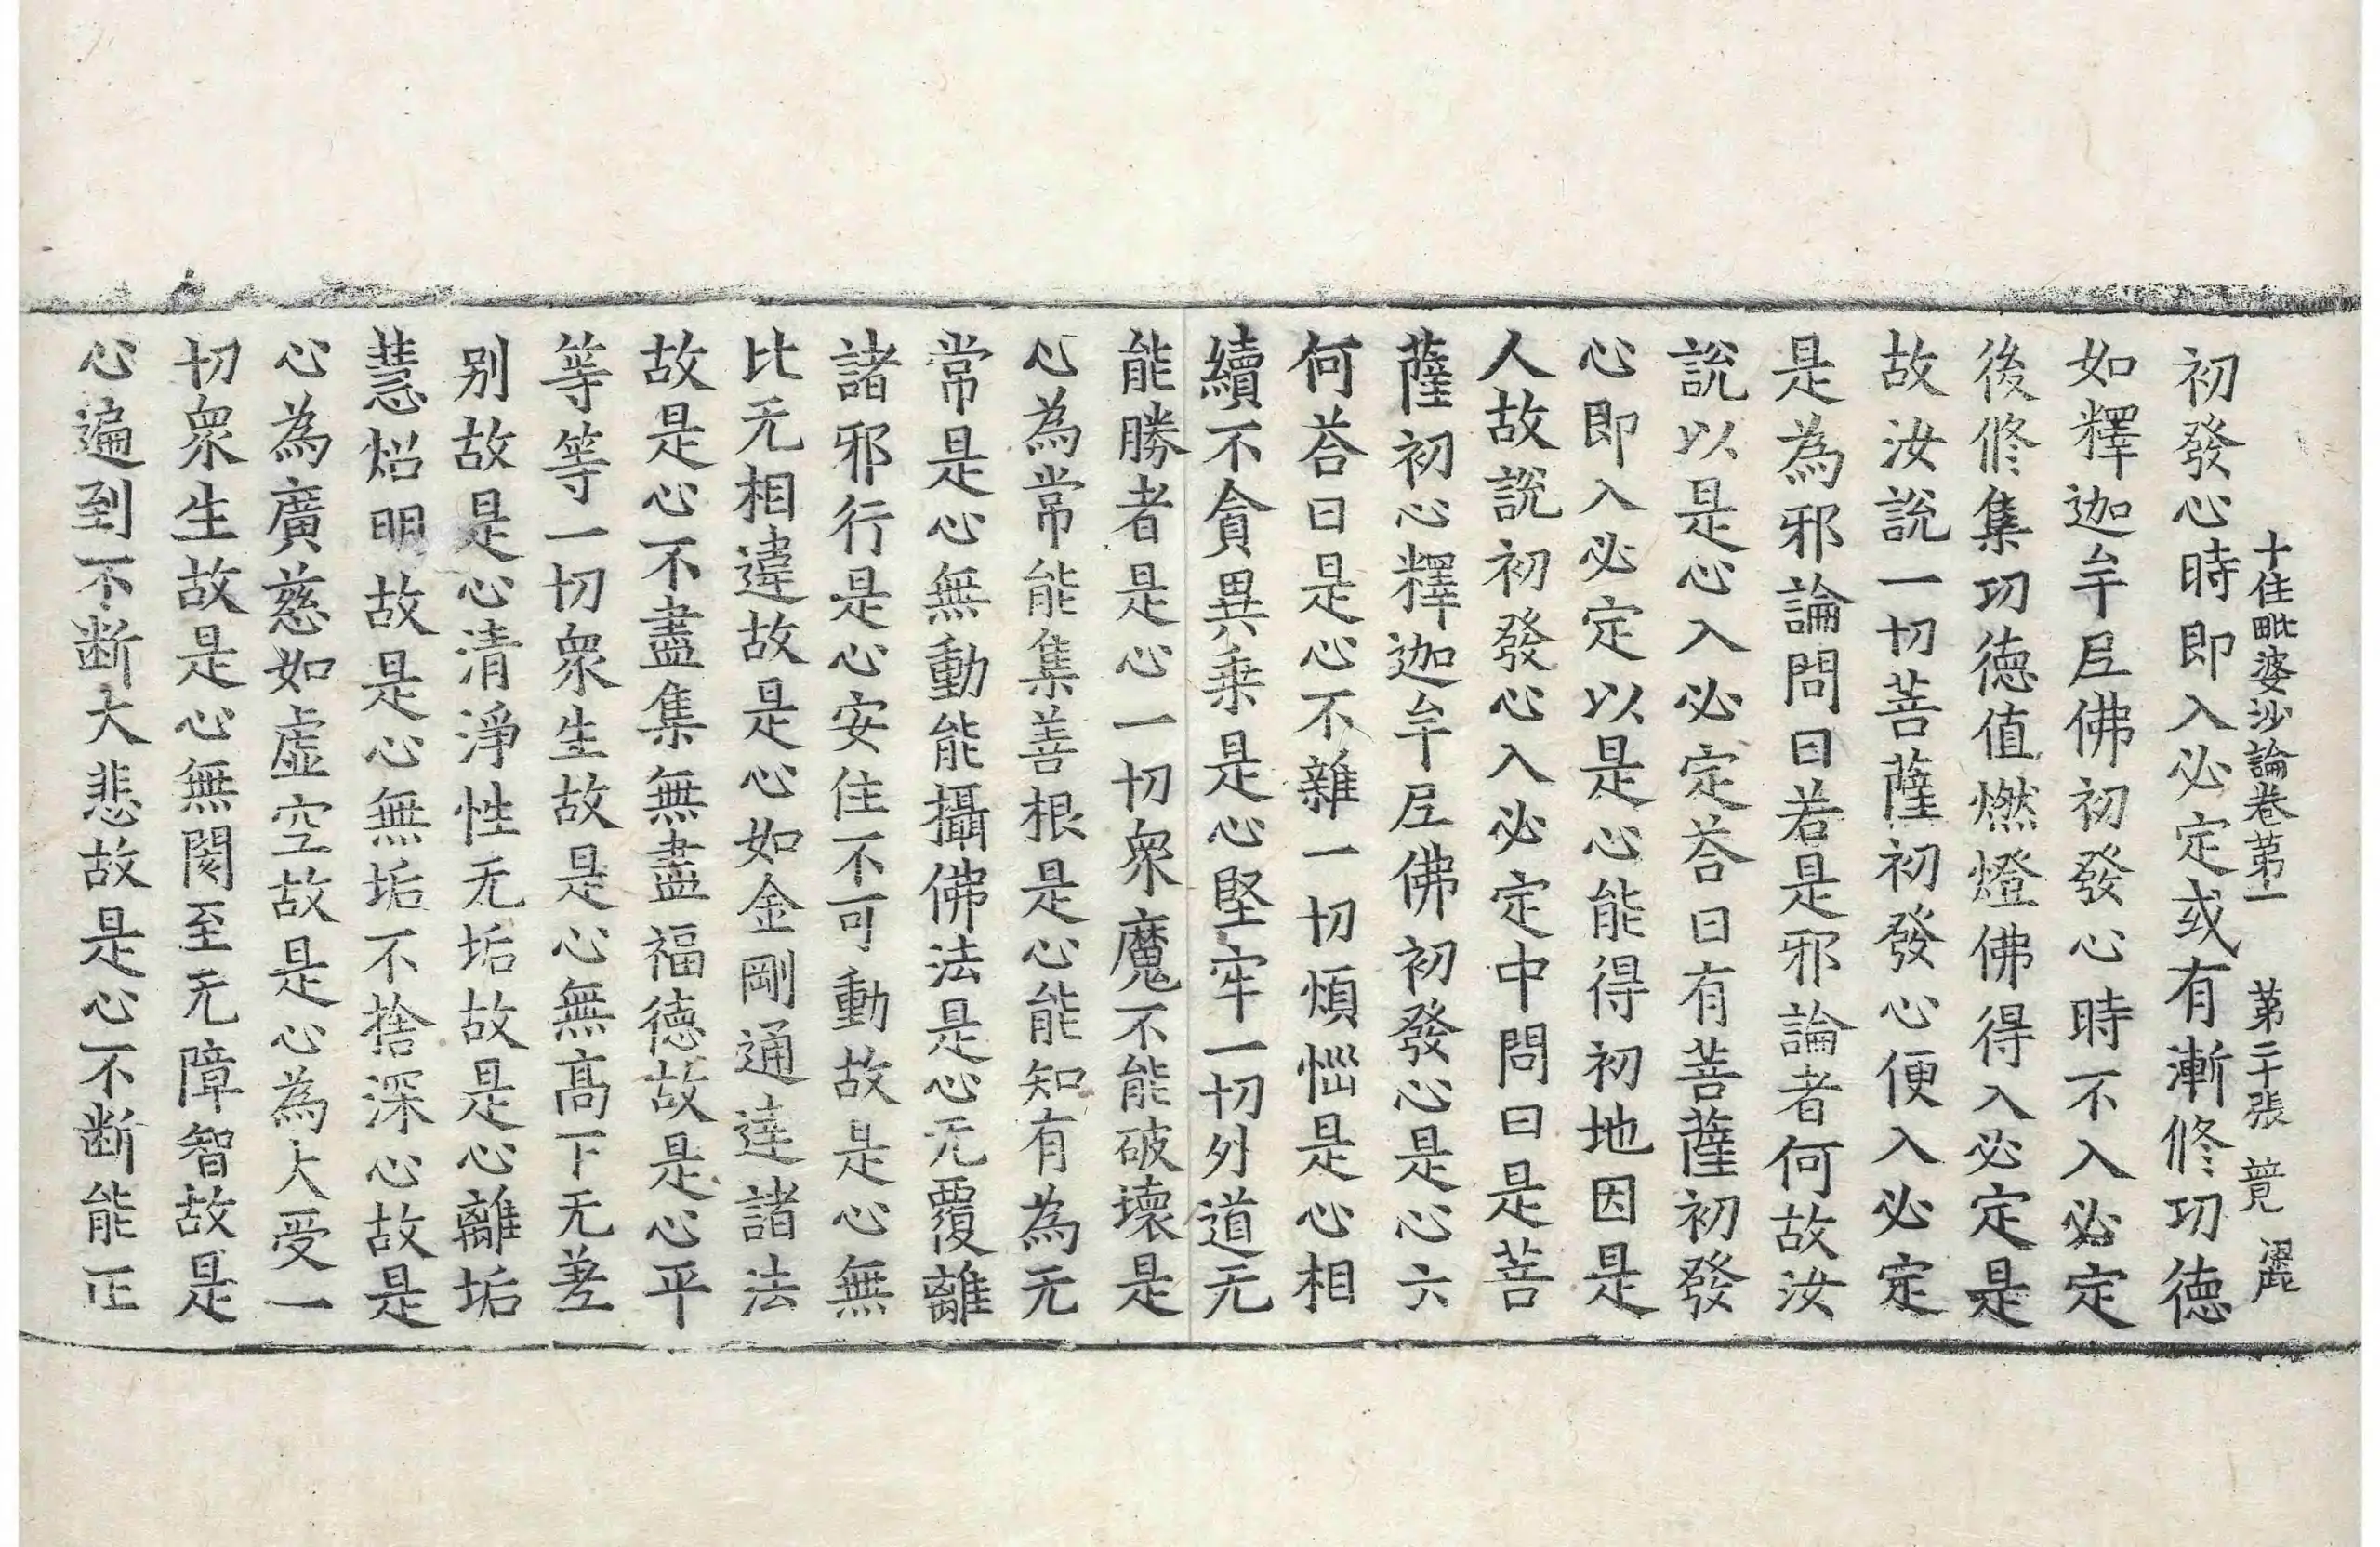 十住毗婆沙論卷苐一　苐二十張　䇓　灑
初發心時即入必定或有漸修功徳
如釋迦牟𡰱佛初發心時不入必定
後修集功徳值燃燈佛得入必定是
故汝說一切菩薩初發心便入必定
是為邪論問曰若是邪論者何故汝
說以是心入必定荅曰有菩薩初發
心即入必定以是心能得初地因是
人故說初發心入必定中問曰是菩
薩初心釋迦牟𡰱佛初發心是心六
何荅曰是心不雜一切煩惱是心相
續不貪異乗是心堅牢一切外道无
能勝者是心一切衆魔不能破壞是
心為常能集善根是心能知有為无
常是心無動能攝佛法是心无覆離
諸邪行是心安住不可動故是心無
比无相違故是心如金剛通達諸法
故是心不盡集無盡福徳故是心平
等等一切衆生故是心無髙下无差
别故是心清淨性无垢故是心離垢
慧炤明故是心無垢不捨深心故是
心為廣慈如虛空故是心為大受一
切衆生故是心無閡至无障智故是
心遍到不断大悲故是心不断能正